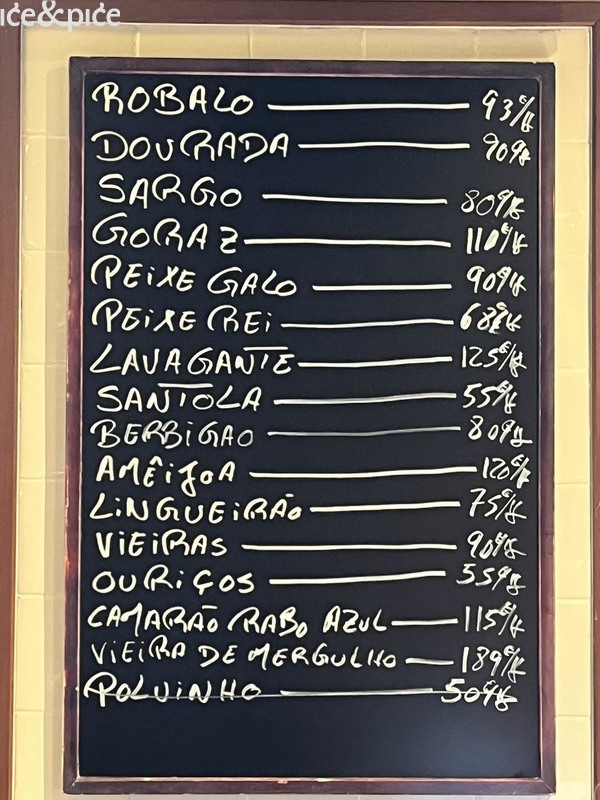 ice&pice
ROBALO 93€/kg
DOURADA 90€/kg
SARGO 80€/kg
GORAZ 110€/kg
PEIXE GALO 90€/kg
PEIXE REI 68€/kg
LAVAGANTE 125€/kg
SANTOLA 55€/kg
BERBIGAO 80€/kg
AMÊIJOA 120€/kg
LINGUEIRÃO 75€/kg
VIEIRAS 90€/kg
OURIÇOS 55€/kg
CAMARÃO RABO AZUL 115€/kg
VIEIRA DE MERGULHO 189€/kg
POLVINHO 50€/kg